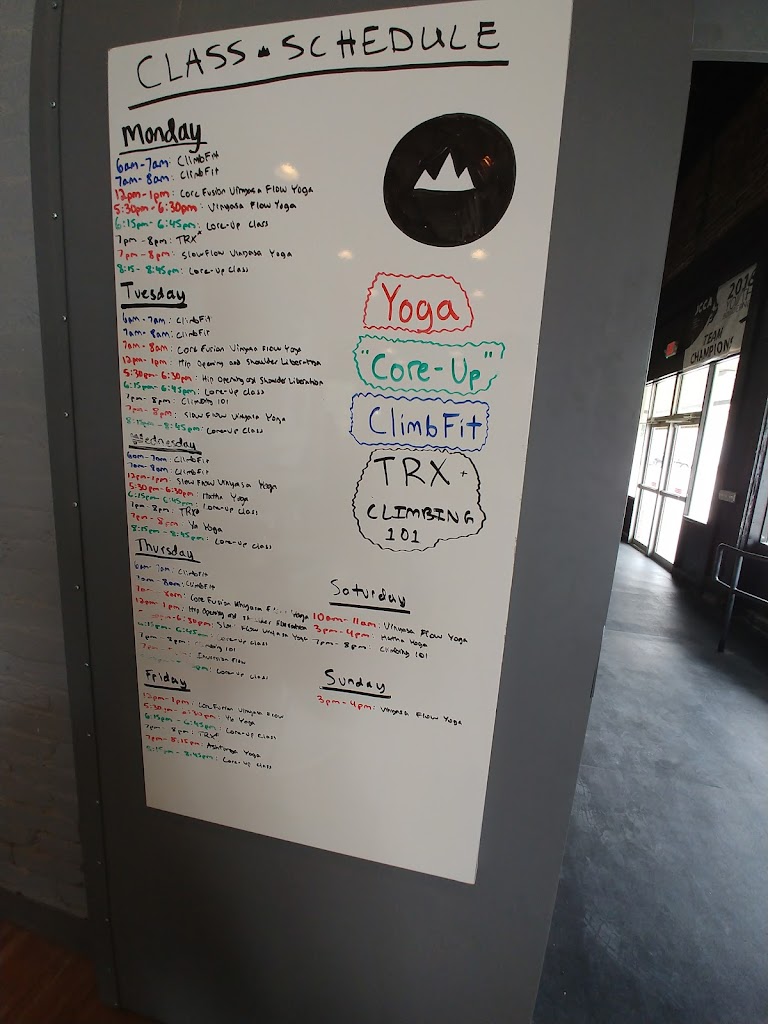 CLASS SCHEDULE
Monday
6am-7am: ClimbFit
7am-8am: ClimbFit
12pm-1pm: Core Fusion Vinyasa Flow Yoga
5:30pm-6:30pm: Vinyasa Flow Yoga
6:15pm-6:45pm: Core-Up Class
7pm-8pm: TRX*
7pm-8pm: Slow Flow Vinyasa Yoga
8:15-8:45pm: Core-Up Class
Tuesday
6am-7am: ClimbFit
7am-8am: ClimbFit
7am-8am: Core Fusion Vinyasa Flow Yoga
12pm-1pm: Hip Opening and Shoulder Liberation
5:30pm-6:30pm: Hip Opening and Shoulder Liberation
6:15pm-6:45pm: Core-Up Class
7pm-8pm: Climbing 101
7pm-8pm: Slow Flow Vinyasa Yoga
8:15pm-8:45pm: Core-Up Class
Wednesday
6am-7am: ClimbFit
7am-8am: ClimbFit
12pm-1pm: Slow Flow Vinyasa Yoga
5:30pm-6:30pm: Hatha Yoga
6:15pm-6:45pm: Core-Up Class
7pm-8pm: TRX*
7pm-8pm: Yin Yoga
8:15pm-8:45pm: Core-Up Class
Thursday
6am-7am: ClimbFit
7am-8am: ClimbFit
Core Fusion Vinyasa Yoga
12pm-1pm: Hip Opening and Liberation
6:30pm: Slow Flow Vinyasa Yoga
6:15pm-6:45pm: Core-Up Class
7pm-8pm: Climbing 101
7pm Inversion Flow
Core-Up Class
Friday
12pm-1pm: Core Fusion Vinyasa Flow
5:30pm-6:30pm: Yin Yoga
6:15pm-6:45pm: Core-Up Class
7pm-8pm: TRX*
7pm-8:15pm: Ashtanga Yoga
8:15pm-8:45pm: Core-Up Class
Yoga
"Core-Up"
ClimbFit
TRX +
CLIMBING
101
Saturday
10am-11am: Vinyasa Flow Yoga
3pm-4pm: Hatha Yoga
7pm-8pm: Climbing 101
Sunday
3pm-4pm: Vinyasa Flow Yoga
2016
TEAM
CHAMPION